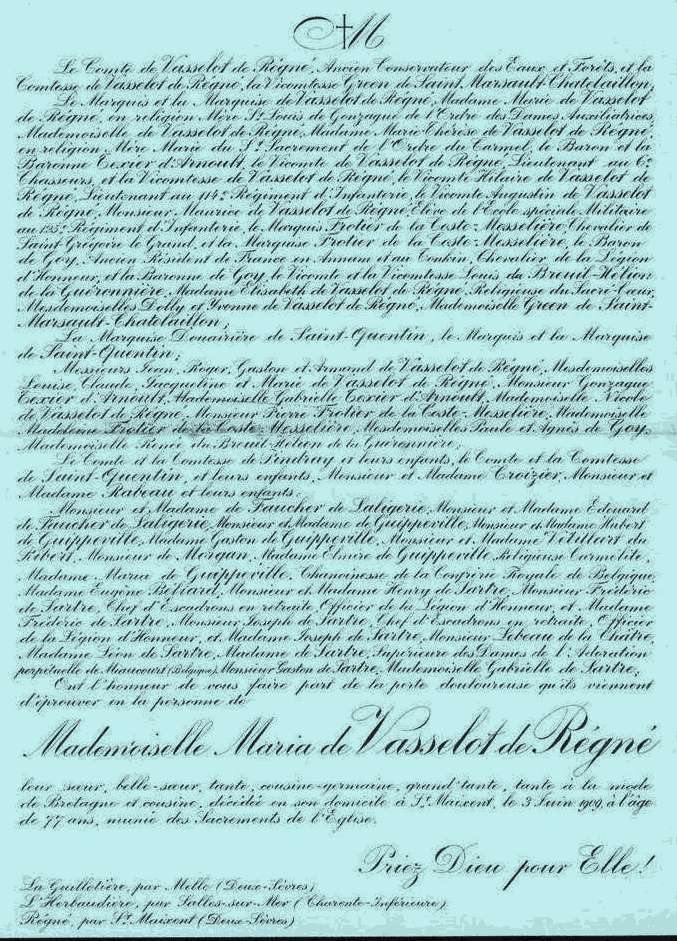 M
Le Comte de Vasselot de Régné, Ancien Conservateur des Eaux et Forêts, et la
Comtesse de Vasselot de Régné, la Vicomtesse Green de Saint Marsault-Chatelaillon;
Le Marquis et la Marquise de Vasselot de Régné, Madame Marie de Vasselot
de Régné, en religion Mère St Louis de Gonzague de l'Ordre des Dames Auxiliatrices,
Mademoiselle de Vasselot de Régné, Madame Marie-Thérèse de Vasselot de Régné,
en religion Mère Marie du St Sacrement de l'Ordre du Carmel, le Baron et la
Baronne Texier d'Arnoult, le Vicomte de Vasselot de Régné, Lieutenant au 6e
Chasseurs, et la Vicomtesse de Vasselot de Régné, le Vicomte Hilaire de Vasselot de
Régné, Lieutenant au 114e Régiment d'Infanterie, le Vicomte Augustin de Vasselot
de Régné, Monsieur Maurice de Vasselot de Régné, Elève de l'Ecole spéciale Militaire
au 125e Régiment d'Infanterie, le Marquis Frotier de la Coste-Messelière, Chevalier de
Saint Grégoire le Grand, et la Marquise Frotier de la Coste-Messelière, le Baron
de Goy, Ancien Résident de France en Annam et au Tonkin, Chevalier de la Légion
d'Honneur, et la Baronne de Goy, le Vicomte et la Vicomtesse Louis du Breuil-Hélion
de la Guéronnière, Madame Elisabeth de Vasselot de Régné, Religieuse du Sacré-Cœur,
Mesdemoiselles Dolly et Yvonne de Vasselot de Régné, Mademoiselle Green de Saint-
Marsault-Chatelaillon;
La Marquise Douairière de Saint-Quentin, le Marquis et la Marquise
de Saint-Quentin;
Messieurs Jean, Roger, Gaston et Armand de Vasselot de Régné, Mesdemoiselles
Louise Claude, Jacqueline et Marie de Vasselot de Régné, Monsieur Gonzague
Texier d'Arnoult, Mademoiselle Gabrielle Texier d'Arnoult, Mademoiselle Nicole
de Vasselot de Régné, Monsieur Pierre Frotier de la Coste-Messelière, Mademoiselle
Madeleine Frotier de la Coste-Messelière, Mesdemoiselles Paule et Agnès de Goy,
Mademoiselle Renée du Breuil-Hélion de la Guéronnière;
Le Comte et la Comtesse de Pindray et leurs enfants, le Comte et la Comtesse
de Saint-Quentin, et leurs enfants, Monsieur et Madame Croizier, Monsieur et
Madame Rabeau et leurs enfants;
Monsieur et Madame de Faucher de Laligerie, Monsieur et Madame Edouard
de Faucher de Laligerie, Monsieur et Madame de Guippeville, Monsieur et Madame Hubert
de Guippeville, Madame Gaston de Guippeville, Monsieur et Madame Vétillart du
Ribert, Monsieur de Morgan, Madame Elmire de Guippeville, Religieuse Carmélite,
Madame Maria de Guippeville, Chanoinesse de la Confrérie Royale de Belgique,
Madame Eugène Béliard, Monsieur et Madame Henry de Sartre, Monsieur Frédéric
de Sartre, Chef d'Escadrons en retraite, Officier de la Légion d'Honneur, et Madame
Frédéric de Sartre, Monsieur Joseph de Sartre, Chef d'Escadrons en retraite, Officier
de la Légion d'Honneur, et Madame Joseph de Sartre, Monsieur Lebeau de la Châtre,
Madame Léon de Sartre, Madame de Sartre, Supérieure des Dames de l'Adoration
perpétuelle de Miaucourt (Belgique), Monsieur Gaston de Sartre, Mademoiselle Gabrielle de Sartre;
Ont l'honneur de vous faire part de la perte douloureuse qu'ils viennent
d'éprouver en la personne de
Mademoiselle Maria de Vasselot de Régné
leur sœur, belle-sœur, tante, cousine-germaine, grand'tante, tante à la mode
de Bretagne et cousine, décédée en son domicile à St Maixent, le 3 Juin 1909, à l'âge
de 77 ans, munie des Sacrements de l'Eglise.
Priez Dieu pour Elle!
La Guillotière, par Melle (Deux-Sèvres)
L'Herbaudière, par Salles-sur-Mer (Charente-Inférieure)
Régné, par St Maixent (Deux-Sèvres)